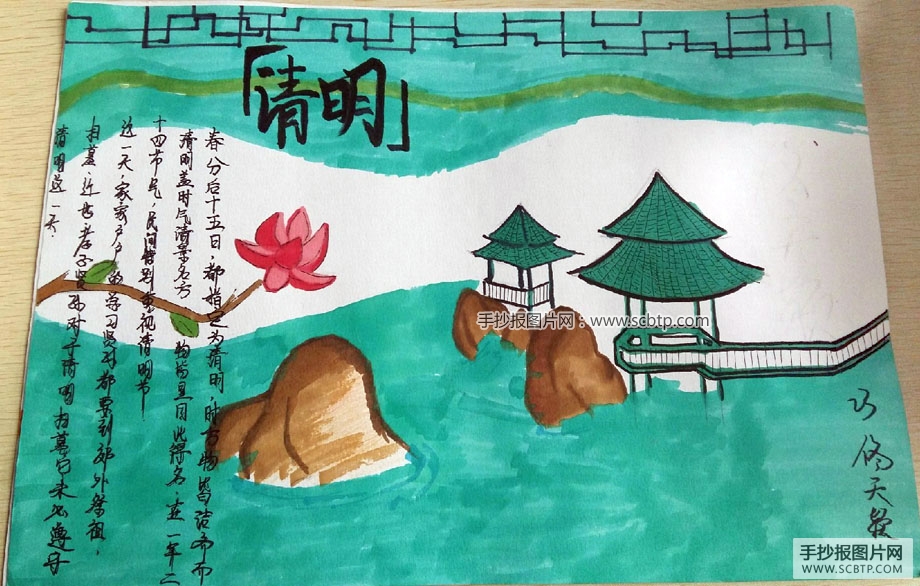 「清明」
春分后十五日,都指定为清明,时万物皆洁齐而
清明盖时气清景名方 物尚呈因此得名.在一年二
十四节气,民间特别重视清明节!
这一天,家家户户的学习贤孙都要到郊外祭祖,
扫墓.近世孝子贤孙对于清明扫墓
清明这一天.
手抄报图片网:www.scbtp.com
天
手抄报图片网
WWW.SCBTP.COM